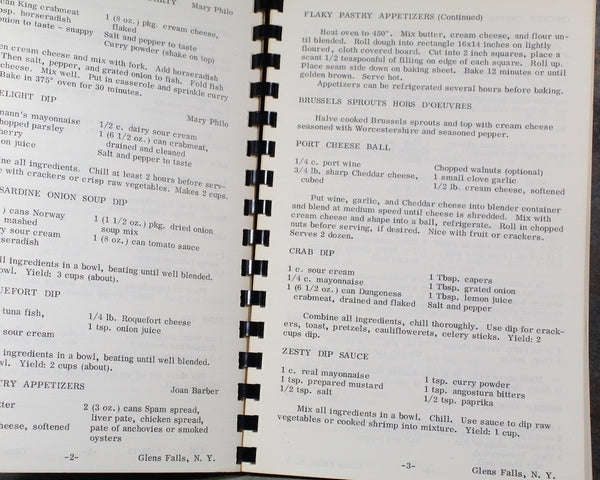 RTY Mary Philo
an King crabmeat
sp. horseradish
onion to taste - snappy
1 (8 oz.) pkg. cream cheese,
flaked
Salt and pepper to taste
Curry powder (shake on top)
en cream cheese and mix with fork. Add horseradish
Then salt, pepper, and grated onion to fish. Fold fish
cheese. Mix well. Put in casserole and sprinkle curry
Bake in 375° oven for 30 minutes.
ELIGHT DIP
Mary Philo
mann's mayonnaise
hopped parsley
herry
on juice
1/2 c. dairy sour cream
1 (6 1/2 oz.) can crabmeat,
drained and cleaned
Salt and pepper to taste
ine all ingredients. Chill at least 2 hours before serv-
e with crackers or crisp raw vegetables. Makes 2 cups.
SARDINE ONION SOUP DIP
) cans Norway
mashed
ry sour cream
rseradish
1 (1 1/2 oz.) pkg. dried onion
soup mix
1 (8 oz.) can tomato sauce
ll ingredients in a bowl, beating until well blended.
owl. Yield: 3 cups (about).
UEFORT DIP
tuna fish,
sour cream
1/4 lb. Roquefort cheese
1 tsp. onion juice
ll ingredients in a bowl, beating until well blended.
owl. Yield: 2 cups (about).
TRY APPETIZERS
Joan Barber
tter
heese, softened
2 (3 oz.) cans Spam spread,
liver pate, chicken spread,
pate of anchovies or smoked
oysters
-2- Glens Falls, N. Y.
FLAKY PASTRY APPETIZERS (Continued)
Heat oven to 450°. Mix butter, cream cheese, and flour un-
til blended. Roll dough into rectangle 16x14 inches on lightly
floured, cloth covered board. Cut into 2 inch squares, place a
scant 1/2 teaspoonful of filling on edge of each square. Roll up.
Place seam side down on baking sheet. Bake 12 minutes or until
golden brown. Serve hot.
Appetizers can be refrigerated several hours before baking.
BRUSSELS SPROUTS HORS D'OEUVRES
Halve cooked Brussels sprouts and top with cream cheese
seasoned with Worcestershire and seasoned pepper.
PORT CHEESE BALL
1/4 c. port wine
3/4 lb. sharp Cheddar cheese,
cubed
Chopped walnuts (optional)
1 small clove garlic
1/2 lb. cream cheese, softened
Put wine, garlic, and Cheddar cheese into blender container
and blend at medium speed until cheese is shredded. Mix with
cream cheese and shape into a ball, refrigerate. Roll in chopped
nuts before serving, if desired. Nice with fruit or crackers.
Serves 2 dozen.
CRAB DIP
1 c. sour cream
1/4 c. mayonnaise
1 (6 1/2 oz.) can Dungeness
crabmeat, drained and flaked
1 Tbsp. capers
1 Tbsp. grated onion
1 Tbsp. lemon juice
Salt and pepper
Combine all ingredients, chill thoroughly. Use dip for crack-
ers, toast, pretzels, cauliflowerets, celery sticks. Yield: 2
cups dip.
ZESTY DIP SAUCE
1 c. real mayonnaise
1 tsp. prepared mustard
1/2 tsp. salt
1 tsp. curry powder
1 tsp. angostura bitters
1/2 tsp. paprika
Mix all ingredients in a bowl. Chill. Use sauce to dip raw
vegetables or cooked shrimp into mixture. Yield: 1 cup.
-3- Glens Falls, N. Y.